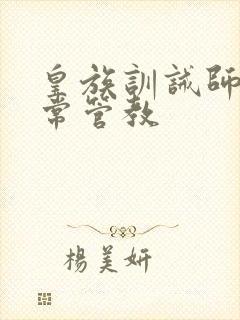 皇族訓誡師
常管教
楊美妍